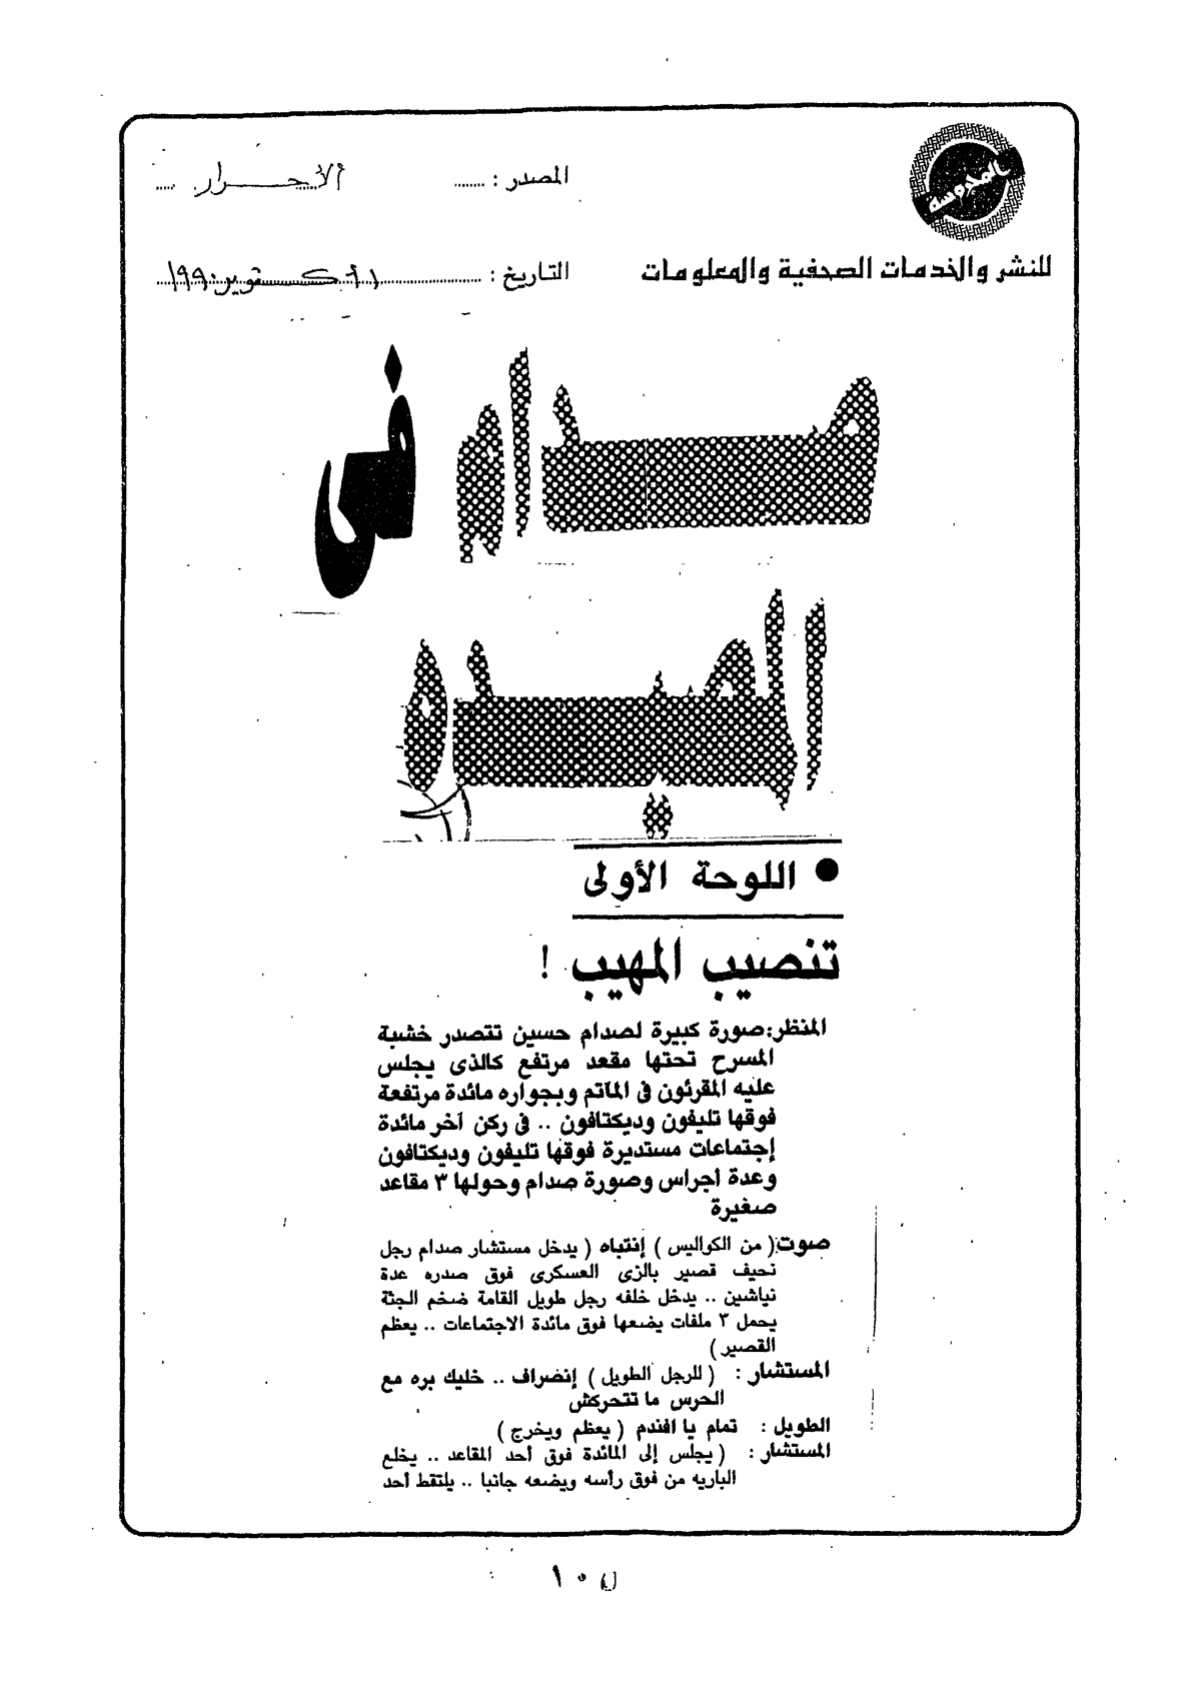 المصدر : ........ الأحرار .....
للنشر والخدمات الصحفية والمعلومات
التاريخ : ........ أكتوبر ١٩٩٠
صدام فى
المصيدة
● اللوحة الأولى
تنصيب المهيب !
المنظر: صورة كبيرة لصدام حسين تتصدر خشبة
المسرح تحتها مقعد مرتفع كالذى يجلس
عليه المقرئون فى المآتم وبجواره مائدة مرتفعة
فوقها تليفون وديكتافون .. فى ركن آخر مائدة
إجتماعات مستديرة فوقها تليفون وديكتافون
وعدة أجراس وصورة صدام وحولها ٣ مقاعد
صغيرة
صوت: ( من الكواليس ) إنتباه ( يدخل مستشار صدام رجل
نحيف قصير بالزى العسكرى فوق صدره عدة
نياشين .. يدخل خلفه رجل طويل القامة ضخم الجثة
يحمل ٣ ملفات يضعها فوق مائدة الاجتماعات .. يعظم
القصير )
المستشار : ( للرجل الطويل ) إنصراف .. خليك بره مع
الحرس ما تتحركش
الطويل : تمام يا افندم ( يعظم ويخرج )
المستشار : ( يجلس إلى المائدة فوق أحد المقاعد .. يخلع
الباريه من فوق رأسه ويضعه جانبا .. يلتقط أحد